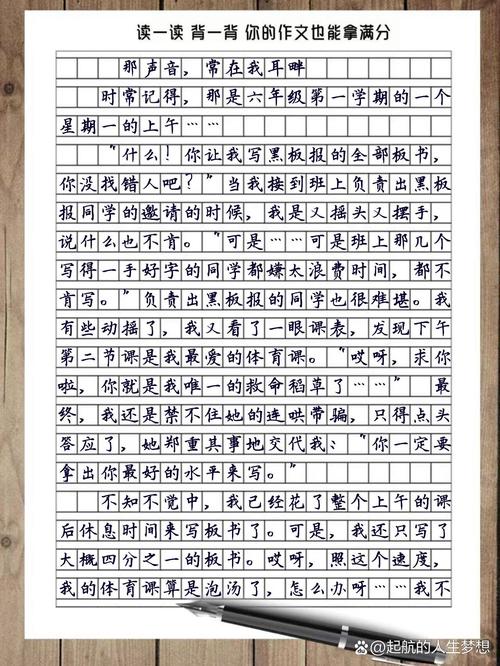 读一读 背一背 你的作文也能拿满分
那声音，常在我耳畔
时常记得，那是六年级第一学期的一个
星期一的上午……
“什么！你让我写黑板报的全部板书，
你没找错人吧？”当我接到班上负责出黑板
报同学的邀请的时候，我是又摇头又摆手，
说什么也不肯。“可是……可是班上那几个
写得一手好字的同学都嫌太浪费时间，都不
肯写。”负责出黑板报的同学也很难堪。我
有些动摇了，我又看了一眼课表，发现下午
第二节课是我最爱的体育课。“哎呀，求你
啦，你就是我唯一的救命稻草了……”最
终，我还是禁不住她的连哄带骗，只得点头
答应了，她郑重其事地交代我：“你一定要
拿出你最好的水平来写。”
不知不觉中，我已经花了整个上午的课
后休息时间来写板书了。可是，我还只写了
大概四分之一的板书。哎呀，照这个速度，
我的体育课算是泡汤了，怎么办呀……我不
@起航的人生梦想